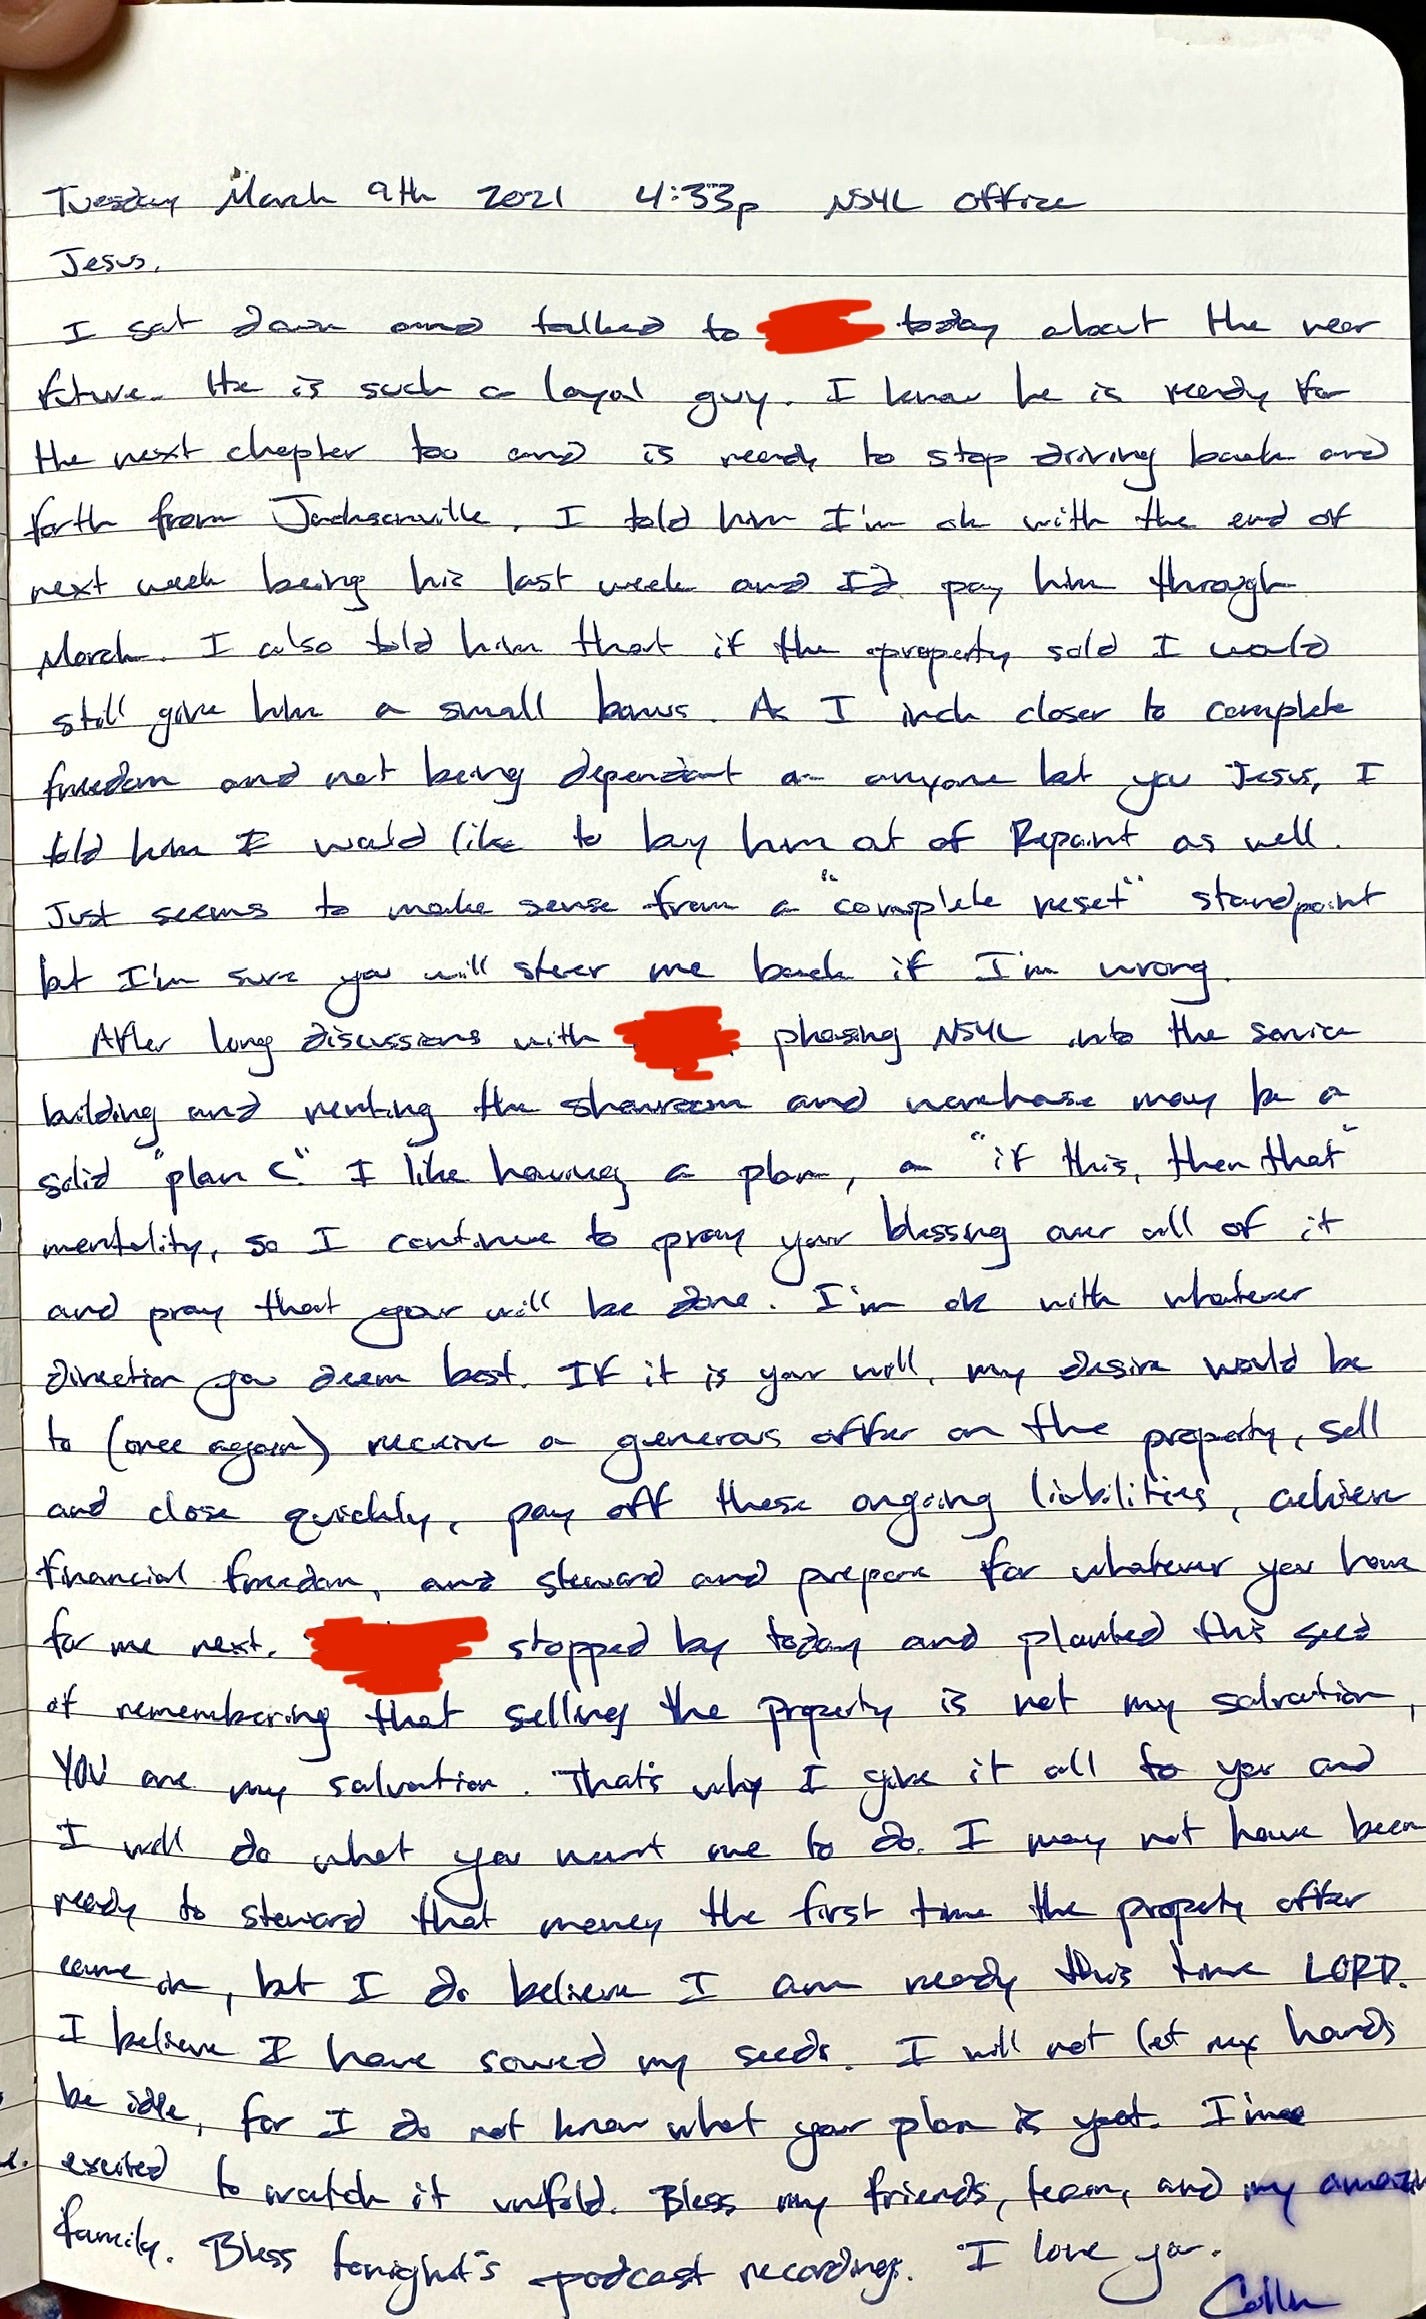 Tuesday March 9th 2021 4:33p NSYL Office
Jesus,
I sat down and talked to today about the near
future. He is such a loyal guy. I know he is ready for
the next chapter too and is ready to stop driving back and
forth from Jacksonville. I told him I'm ok with the end of
next week being his last week and I'd pay him through
March. I also told him that if the property sold I would
still give him a small bonus. As I inch closer to complete
freedom and not being dependant on anyone but you Jesus, I
told him I would like to buy him out of Repaint as well.
Just seems to make sense from a "complete reset" standpoint
but I'm sure you will steer me back if I'm wrong.
After long discussions with phasing NSYL into the service
building and renting the showroom and warehouse may be a
solid "plan C." I like having a plan, an "if this, then that"
mentality, so I continue to pray your blessing over all of it
and pray that your will be done. I'm ok with whatever
direction you deem best. If it is your will, my desire would be
to (once again) receive a generous offer on the property, sell
and close quickly, pay off these ongoing liabilities, achieve
financial freedom, and steward and prepare for whatever you have
for me next. stopped by today and planted this seed
of remembering that selling the property is not my salvation,
YOU are my salvation. That's why I give it all to you and
I will do what you want me to do. I may not have been
ready to steward that money the first time the property offer
came in, but I do believe I am ready this time LORD.
I believe I have sowed my seeds. I will not let my hands
be idle, for I do not know what your plan is yet. I'm
excited to watch it unfold. Bless my friends, team, and my
family. Bless tonight's podcast recordings. I love you.
Collin